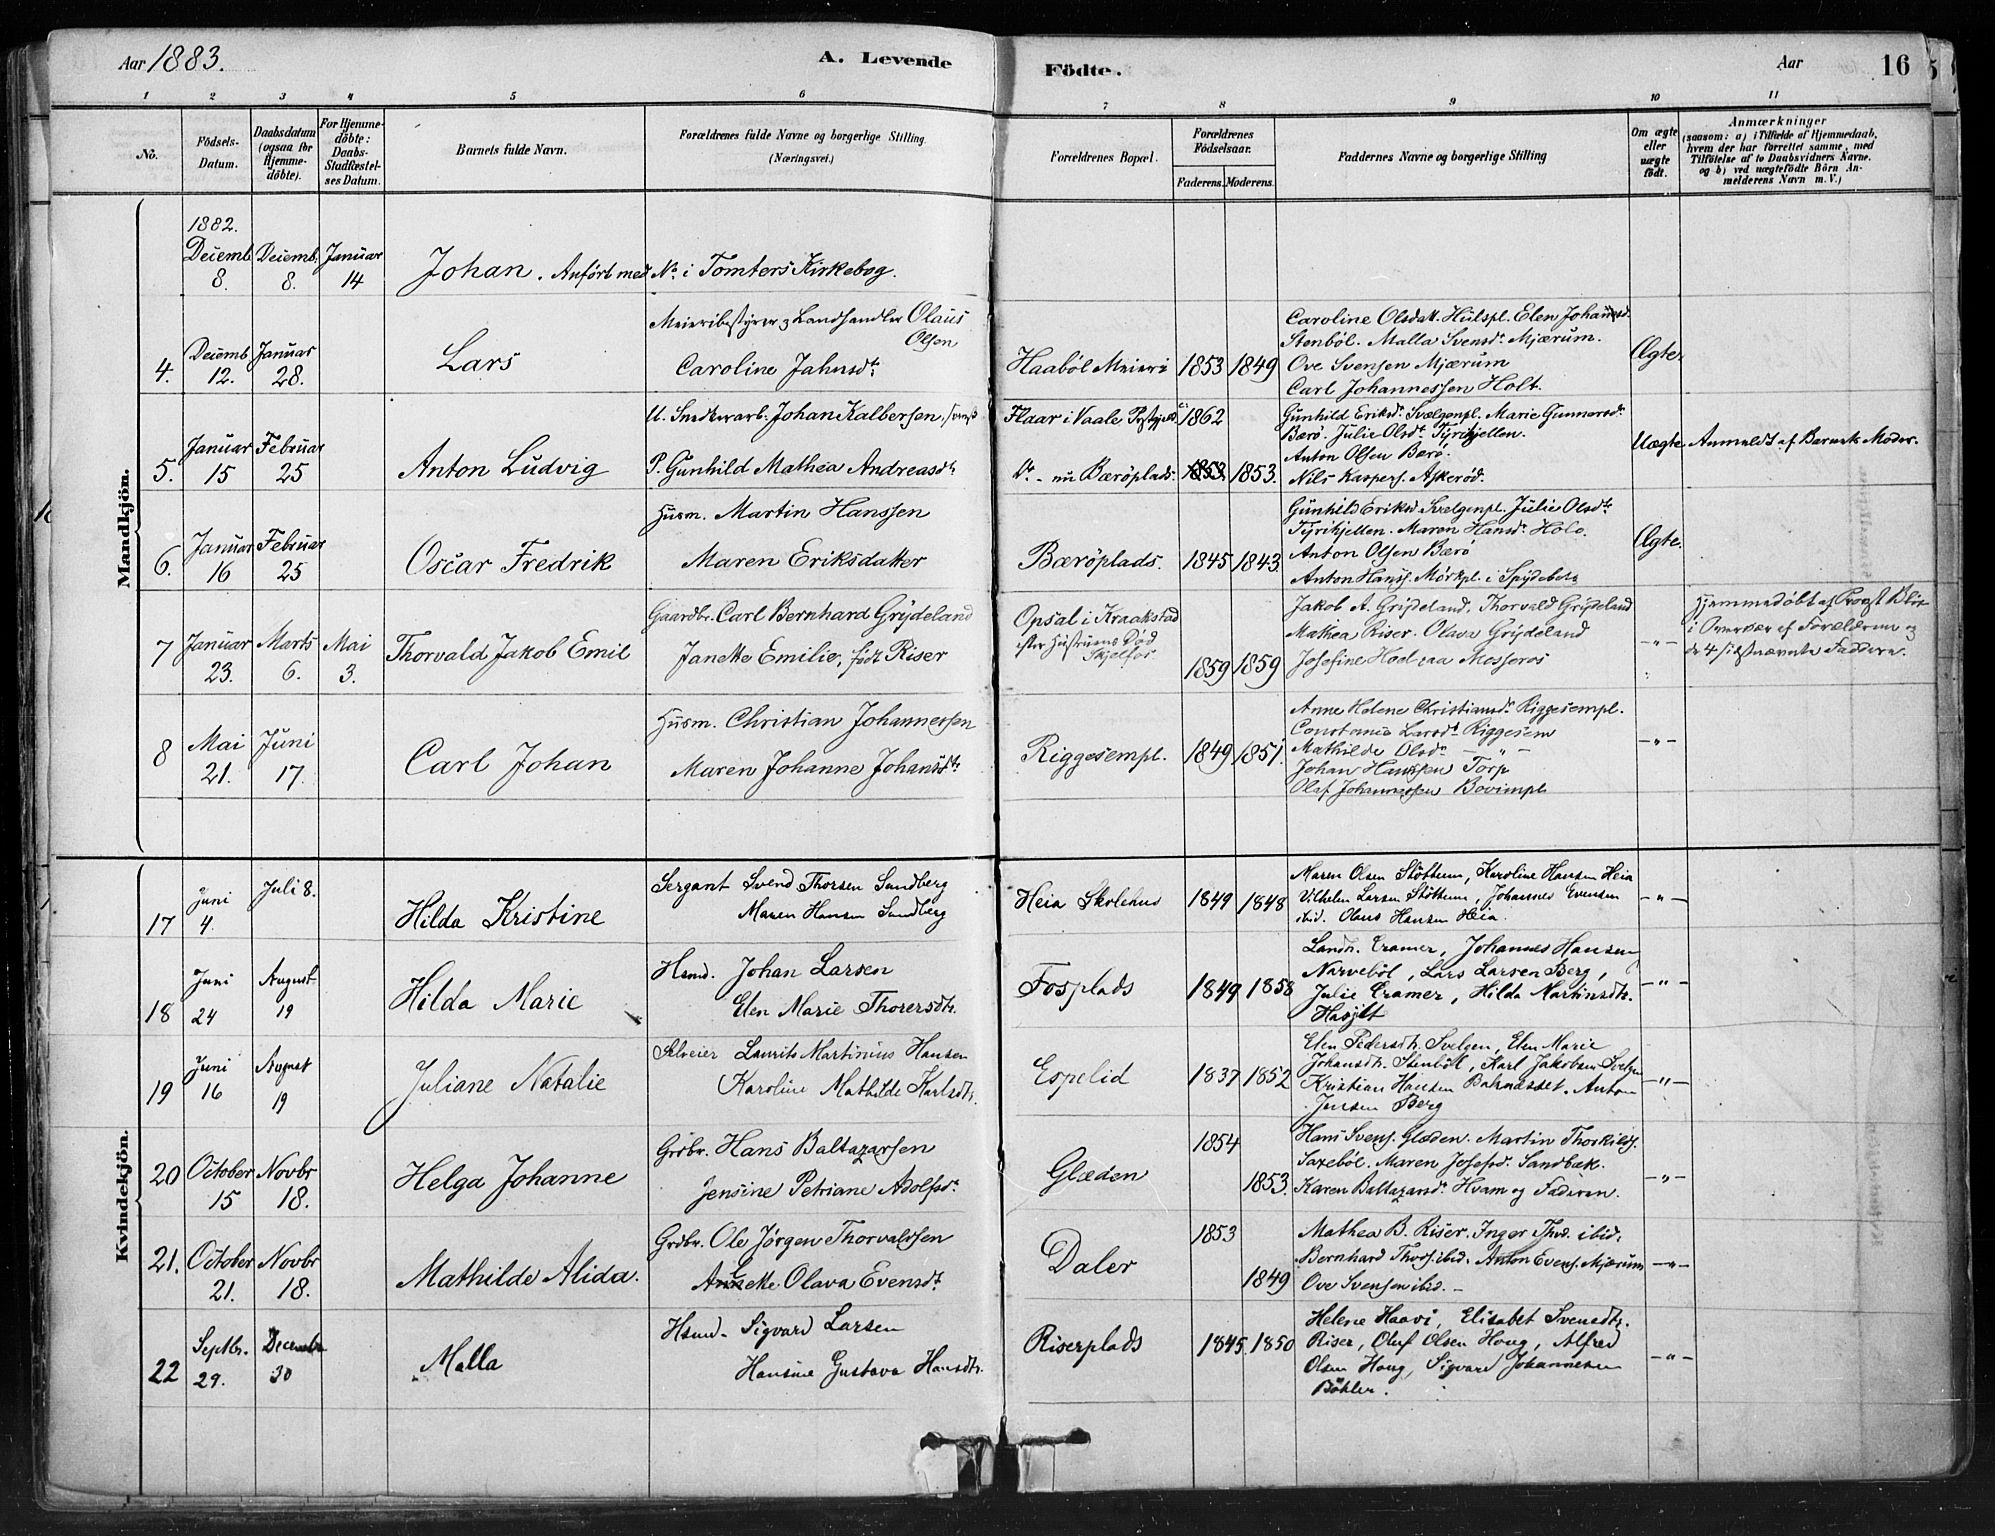 Aar 1883.
A. Levende
Födte.
Aar
16
1 2 3 4 5 6 7 8 9 10 11
No.
Födsels-Datum.
Daabsdatum (ogsaa for Hjemme-döbte).
For Hjemme-döbte: Daabs-Stadfæstel-ses Datum.
Barnets fulde Navn.
Forældrenes fulde Navne og borgerlige Stilling. (Næringsvei.)
Forældrenes Bopæl.
Forældrenes Födselsaar.
Faderens. Moderens.
Faddernes Navne og borgerlige Stilling
Om ægte eller uægte födt.
Anmærkninger
(saasom: a) i Tilfælde af Hjemmedaab,
hvem der har forrettet samme, med
Tilföielse af to Daabsvidners Navne.
og b) ved uægtefödte Börn An-
melderens Navn m. V.)
Mandkjön.
1882.
Decemb. 8. Decemb. 8. Januar 14
Johan. Anført med No i Tomters Kirkebog.
4. Decemb. 12. Januar 28.
Lars
Meieribestyrer & Landhandler Olaus Olsen
Caroline Jahnsdt.
Haaböl Meieri 1853 1849
Caroline Olsdatt. Hulspl. Elen Johannesd.
Stenböl. Malla Svensdr. Mjærum.
Ove Svensen Mjærum
Carl Johannessen Holt.
Ægte.
5. Januar 15 Februar 25
Anton Ludvig
U. Snedkerarb. Johan Kalbersen, svensk
P. Gunhild Mathea Andreasdt.
Flaar i Vaale 1862
nu Bæröplads. 1853. 1853.
Gunhild Eriksdr. Svælgenpl. Marie Gunnersdr.
Bærö. Julie Olsdt. Tyrihjellen.
Anton Olsen Bærö.
Nils Kaspers. Askeröd.
Uægte. Anmeldt af Barnets Moder.
6. Januar 16 Februar 25
Oscar Fredrik
Husm. Martin Hanssen
Maren Eriksdatter
Bæröplads. 1845 1843.
Gunhild Eriksd. Svelgenpl. Julie Olsdt.
Tyrihjellen. Maren Hansdr. Holo.
Anton Olsen Bærö
Anton Hanss. Mörkpl. i Spydeb.
Ægte.
7 Januar 23. Marts 6. Mai 3.
Thorvald Jakob Emil
Gaardbr. Carl Bernhard Grydeland
Janette Emilie, född Riser
Opsal i Kraakstad
efter Hustruens Död
1859 1859
Jakob A. Grydeland, Thorvald Grydeland
Mathea Riser. Olava Grydeland
Josefine Hod Mosseros
-"-
Hjemmedöbt af Provst
i Overvær af Forældrene og
de 4 sidstnævnte Faddere.
8 Mai 21. Juni 17.
Carl Johan
Husm. Christian Johannessen
Maren Johanne Johansdt.
Riggesempl. 1849 1851.
Anne Helene Christiansdr. Riggesempl.
Constance Larsdt Riggesem
Mathilde Olsdr. - " -
Johan Hanssen Torp
Olaf Johannessen Bovimpl
-"-
Kvindekjön.
17 Juni 4. Juli 8.
Hilda Kristine
Sergant Svend Thorsen Sandberg
Maren Hansen Sandberg
Heia Skolehus 1849 1848
Maren Olsen Stöttum, Karoline Hansen Heia
Vilhelm Larsen Stöttum, Johannes Evensen
ibid. Olaus Hansen Heia.
-"-
18 Juni 24 August 19
Hilda Marie
Hsmd. Johan Larsen
Elen Marie Thorersdtr.
Fosplads 1849 1858
Landh. Cramer, Johannes Hansen
Narveböl, Lars Larsen Berg,
Julie Cramer, Hilda Martinsdtr.
-"-
19 Juni 16 August 19
Juliane Natalie
Selveier Laurits Martinius Hansen
Karoline Mathilde Karlsdtr.
Espelid 1837 1852
Elen Pedersdtr Svelgen, Elen Marie
Johansdtr. Stenböl, Karl Jakobsen Svelgen
Kristian Hansen . Anton
Jensen Berg
-"-
20 October 15 Novbr 18.
Helga Johanne
Grdbr. Hans Baltazarsen
Jensine Petriane Adolfsdr.
Glæden 1854 1853.
Hans Svens. Glæden. Martin Thorkilds.
Saxeböl. Maren Josefsd. Sandbæk.
Karen Baltazarsdr. Hvam og Faderen.
-"-
21. October 21. Novbr 18.
Mathilde Alida.
Grdbr. Ole Jörgen Thorvaldsen
Olava Evensdt.
Daler 1853 1849
Mathea B. Riser. Inger Thvd. ibid.
Bernhard Thvds ibid. Anton Evens. Mjærum
Ove Svensen ibid. -
-"-
22 Septbr. 29. Decembr 30
Malla
Hsmd. Sigvard Larsen
Hansine Gustava Hansdtr.
Riserplads 1845. 1850
Helene Haavi, Elisabet Svensdtr.
Riser, Oluf Olsen Houg, Alfred
Olsen Houg, Sigvard Johannesen
Böhler.
-"-